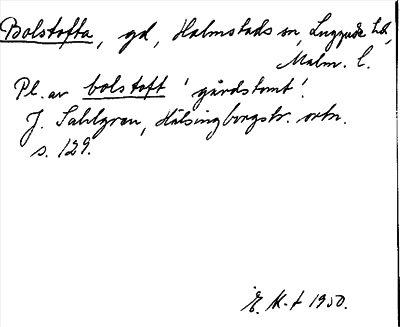 Bolstofta, gd, Halmstads sn, Luggude hd,
Malm. l.
Pl. av bolstoft 'gårdstomt'.
J. Sahlgren, Hälsingborgstr. ortn.
s. 129.
E. K-t 1950.